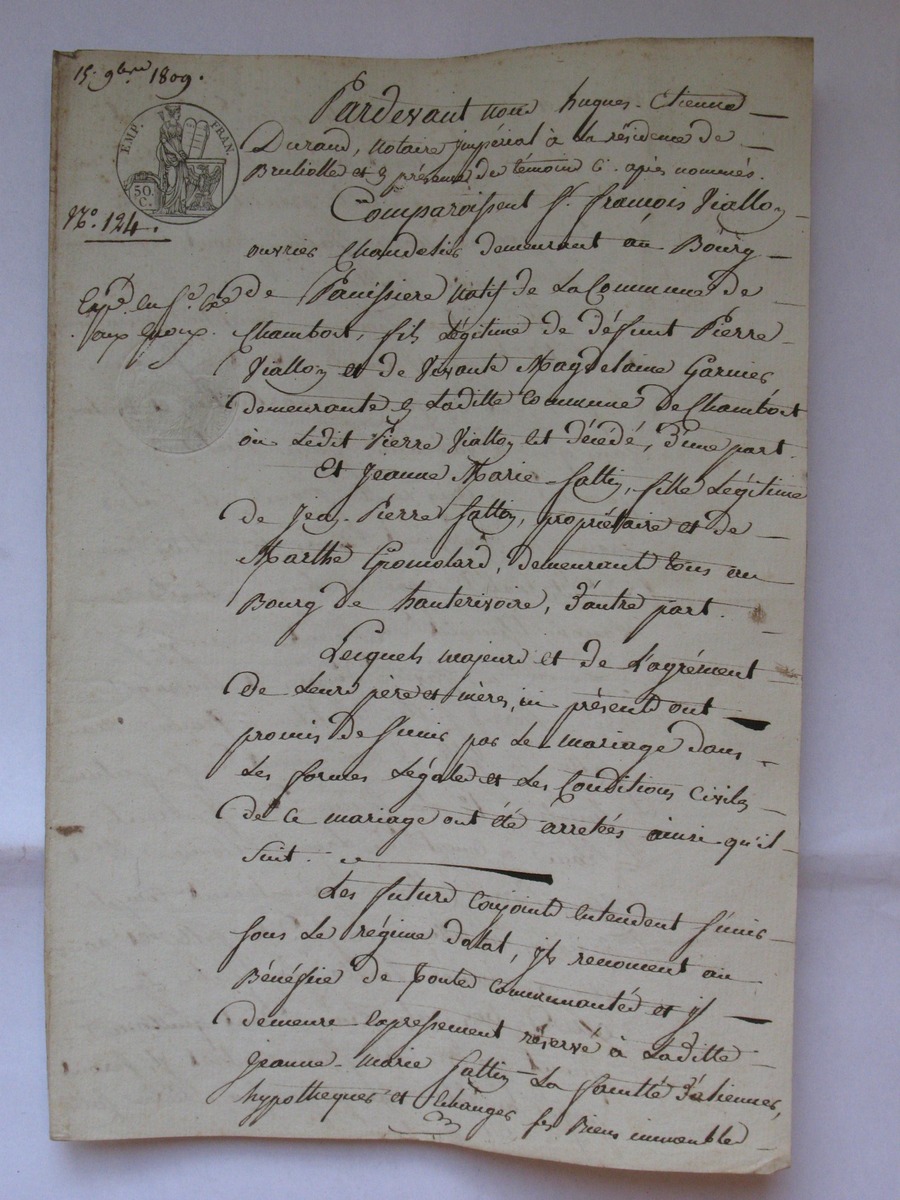 15. 9bre 1809.
EMP. FRAN.
50. C.
N.º 124.
Pardevant nous hugues Etienne
Durand, notaire impérial à la résidence de
Brullolle et en présence des témoins ci après nommés.
Comparoissent Sr. françois Viallon
ouvrier Chandelier demeurant au Bourg
de Panissiere natif de La Commune de
aux Epoux.
Chambost, fils Légitime de défunt Pierre
Viallon et de vivante Magdelaine Garnier
demeurante en Laditte Commune de Chambost
où Ledit Pierre Viallon est décédé, d'une part.
Et Jeanne Marie Sattin, fille Légitime
de Jean Pierre Satton, propriétaire et de
Marthe Gromolard, demeurant tous au
Bourg de hauterivoire, d'autre part.
Lesquels majeurs et de L'agrément
de Leurs père et mères, ici présents ont
promis de s'unir par Le mariage dans
Les formes Légales et Les Conditions Civiles
de Ce mariage ont été arretées ainsi qu'il
suit.
Les futurs conjoints entendent s'unir
sous Le régime dotal, ils renoncent au
Bénéfice de toutes Communautés et il
demeure expressement réservé à Laditte
Jeanne-marie Sattin La faculté d'aliener,
hypothequer et echanger ses Biens immeubles